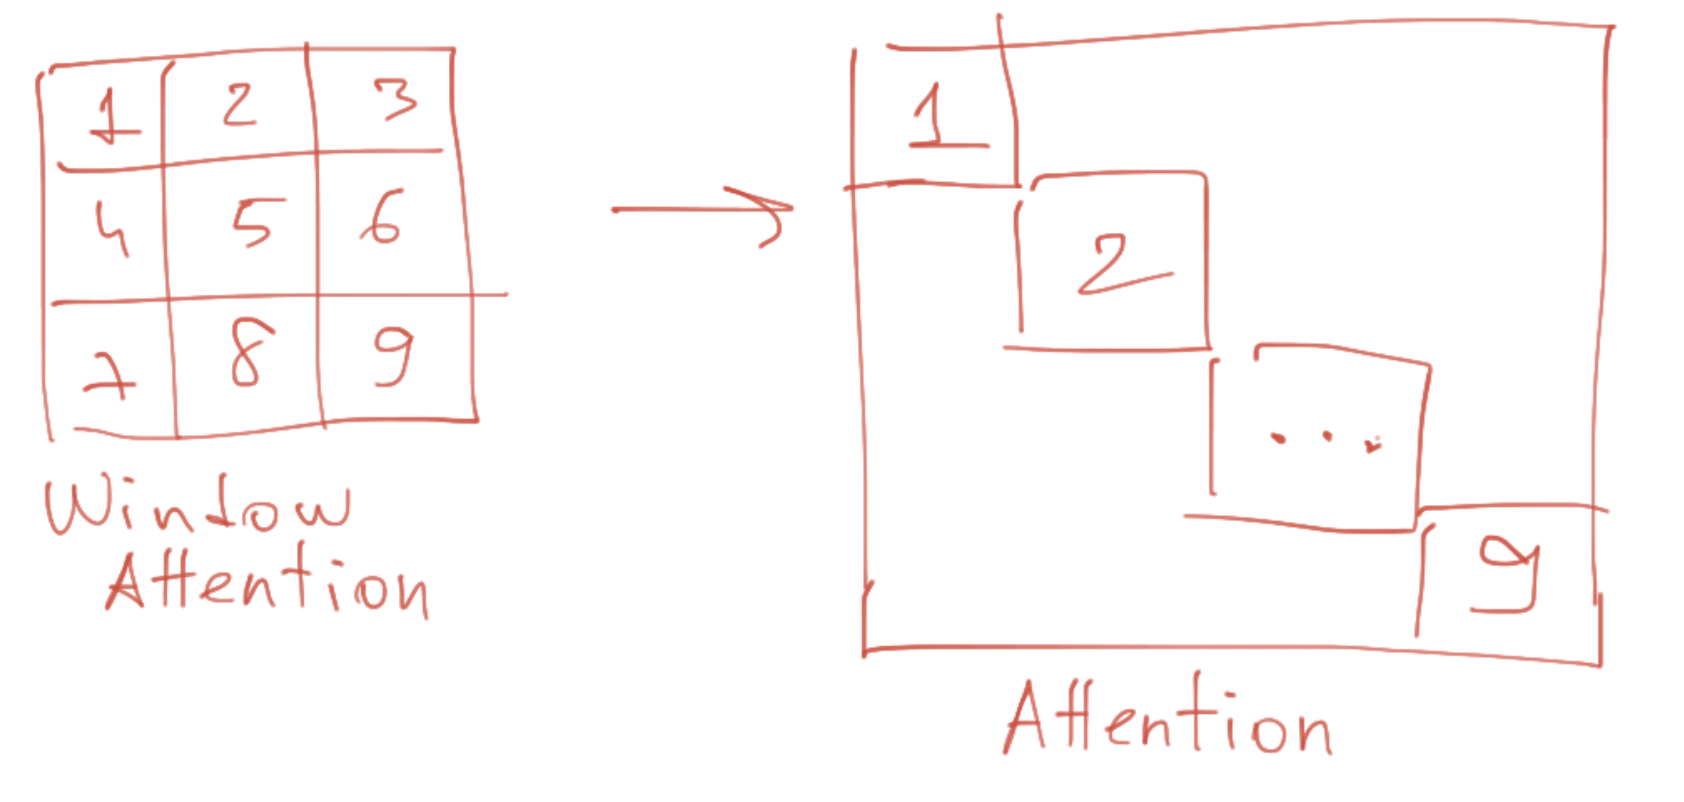 1 2 3
4 5 6
7 8 9
Window
Attention
1
2
...
9
Attention